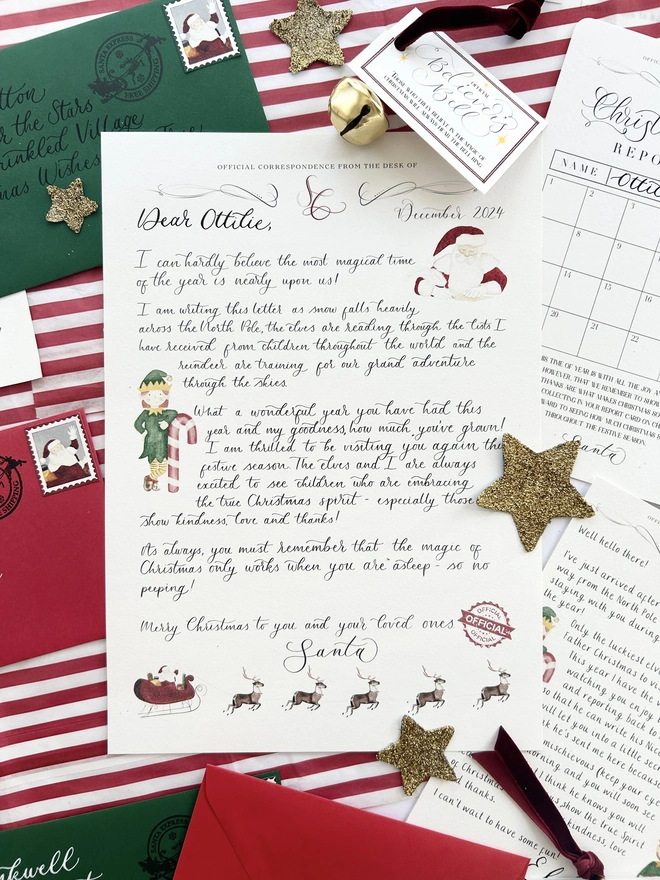 SANTA EXPRESS
FREE SHIPPING
for the Stars
Village
Christmas
OFFICIAL
Believe
Bell
THOSE WHO TRULY BELIEVE IN THE MAGIC OF
CHRISTMAS WILL ALWAYS HEAR THE BELL RING
OFFICIAL CORRESPONDENCE FROM THE DESK OF
SC
Dear Ottilie,
December 2024
I can hardly believe the most magical time
of the year is nearly upon us!
I am writing this letter as snow falls heavily
across the North Pole, the elves are reading through the lists I
have received from children throughout the world and the
reindeer are training for our grand adventure
through the skies.
What a wonderful year you have had this
year and my goodness, how much you've grown!
I am thrilled to be visiting you again this
festive season. The elves and I are always
excited to see children who are embracing
the true Christmas spirit - especially those
show kindness, love and thanks!
As always, you must remember that the magic of
Christmas only works when you are asleep - so no
peeping!
Merry Christmas to you and your loved ones
OFFICIAL
OFFICIAL
OFFICIAL
Santa
REPO
NAME
Ottil
1
2
3
8
9
14
15
20
21
22
THIS TIME OF YEAR IS WITH ALL THE JOY A
HOWEVER, THAT WE REMEMBER TO SHO
THANKS ARE WHAT MAKES CHRISTMAS SO
COLLECTING IN YOUR REPORT CARD ON CH
WARD TO SEEING HOW MUCH CHRISTMAS
THROUGHOUT THE FESTIVE SEASON.
Santa
Well hello there!
I've just arrived after
way from the North Pole
staying with you during
the year!
Only the luckiest
Father Christmas to vi
this year I have the
watching you enjoy
and reporting back to
so that he can write his Nice
will let you into a little sec
think he's sent me here because
mischievous (keep your eye
morning and you will soon see
of Christmas I think he knows you will
thanks. show the true Spirit
kindness, love
I can't wait to have some fun!
SANTA EXPRESS